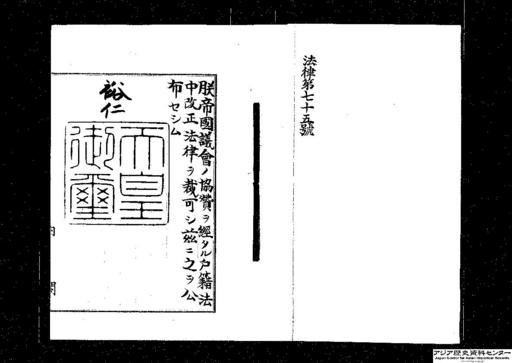 法律第七十五號
朕帝國議會ノ協賛ヲ經タル戸籍法
中改正法律ヲ裁可シ茲ニ之ヲ公
布セシム
裕仁
天皇
御璽
内
閣
アジア歴史資料センター
Japan Center for Asian Historical Records